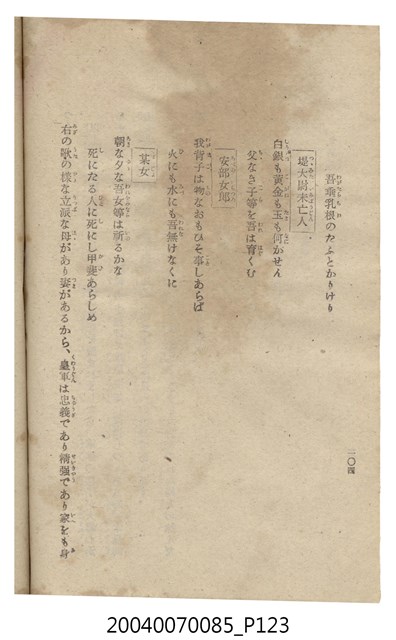 吾乖乳根のたふとかりけり
堤大尉未亡人
白銀も黃金も玉も何かせん
父なき子等を吾は育くむ
安部女郞
我背子は物なおもひそ事しあらば
火にも水にも吾無けなくに
某女
朝な夕な吾女等は祈るかな
死にたる人に死にし甲斐あらしめ
右の歌の樣な立派な母があり妻があるから、皇軍は忠義であり精强であり家をも身
二〇四
20040070085_P123